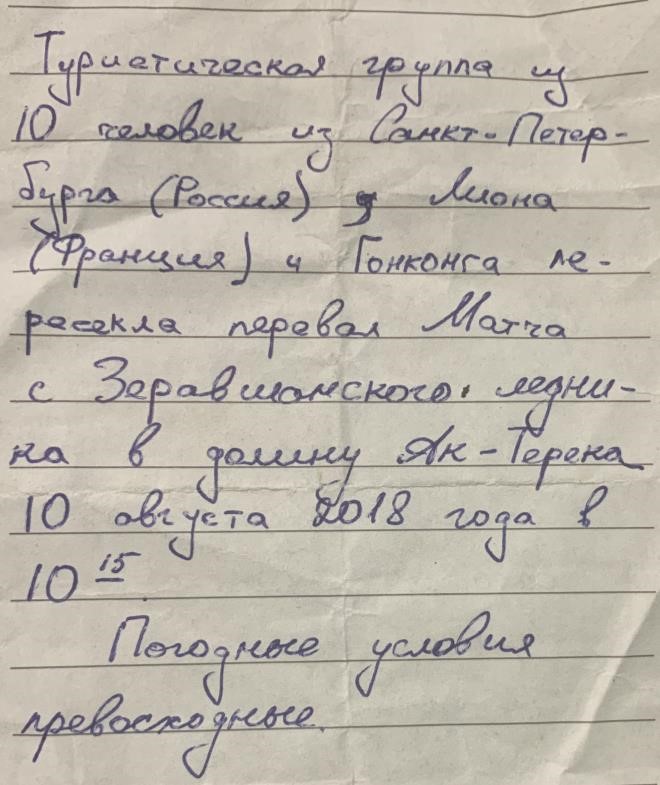 Туристическая группа из
10 человек из Санкт-Петер-
бурга (Россия), Лиона
(Франция) и Гонконга пе-
ресекла перевал Матча
с Зеравшанского ледни-
ка в долину Ак-Терека
10 августа 2018 года в
10 15
Погодные условия
превосходные.